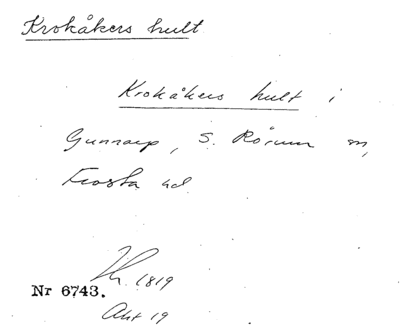 Krokåkers hult
Krokåkers hult i
Gunnarp, S. Rörum sn,
Frosta hd.
1819
Nr 6743.
Akt 19